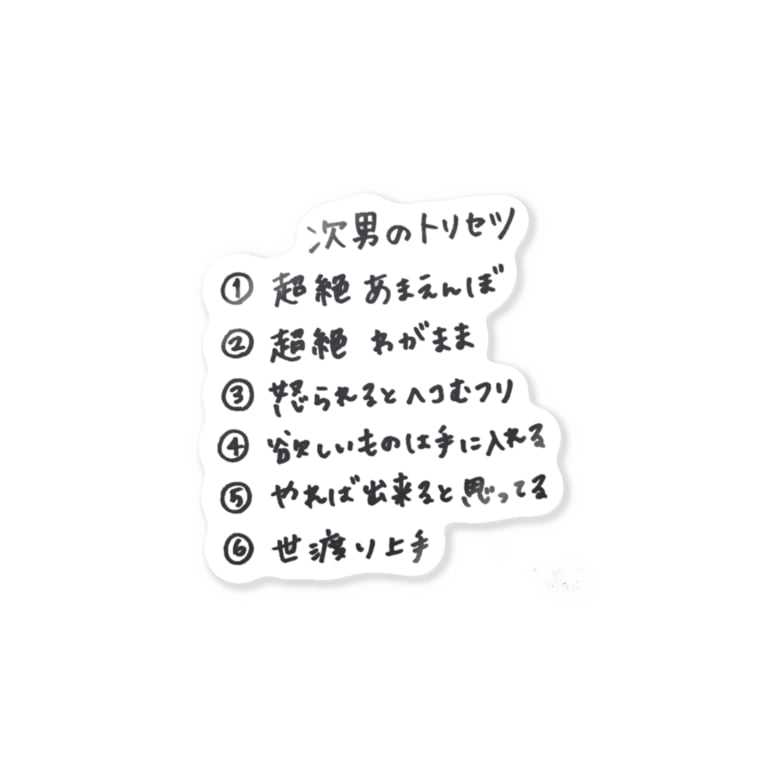 次男のトリセツ
① 超絶 あまえんぼ
② 超絶 わがまま
③ 怒られるとヘコむフリ
④ 欲しいものは手に入れる
⑤ やれば出来ると思ってる
⑥ 世渡り上手